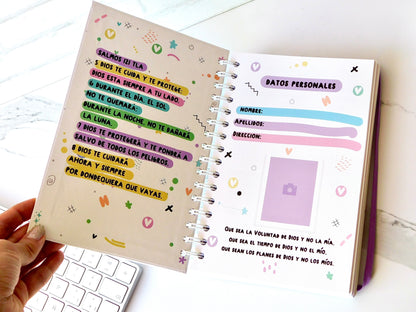 SALMOS 121 TLA
5 DIOS TE CUIDA Y TE PROTEGE.
DIOS ESTA SIEMPRE A TU LADO.
6 DURANTE EL DÍA, EL SOL
NO TE QUEMARÁ;
DURANTE LA NOCHE, NO TE DAÑARÁ
LA LUNA.
7 DIOS TE PROTEGERÁ Y TE PONDRÁ A
SALVO DE TODOS LOS PELIGROS.
8 DIOS TE CUIDARÁ
AHORA Y SIEMPRE
POR DONDEQUIERA QUE VAYAS.
DATOS PERSONALES
NOMBRE:
APELLIDOS:
DIRECCIÓN:
QUE SEA LA VOLUNTAD DE DIOS Y NO LA MÍA,
QUE SEA EL TIEMPO DE DIOS Y NO EL MÍO,
QUE SEAN LOS PLANES DE DIOS Y NO LOS MÍOS.